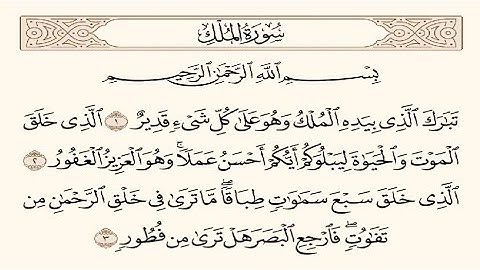 سُورَةُ الْمُلْكِ
بِسْمِ اللَّهِ الرَّحْمَٰنِ الرَّحِيمِ
تَبَٰرَكَ الَّذِي بِيَدِهِ الْمُلْكُ وَهُوَ عَلَىٰ كُلِّ شَيْءٍ قَدِيرٌ ١ الَّذِي خَلَقَ
الْمَوْتَ وَالْحَيَوٰةَ لِيَبْلُوَكُمْ أَيُّكُمْ أَحْسَنُ عَمَلًا ۚ وَهُوَ الْعَزِيزُ الْغَفُورُ ٢
الَّذِي خَلَقَ سَبْعَ سَمَٰوَٰتٍ طِبَاقًا ۖ مَّا تَرَىٰ فِي خَلْقِ الرَّحْمَٰنِ مِن
تَفَٰوُتٍ ۖ فَارْجِعِ الْبَصَرَ هَلْ تَرَىٰ مِن فُطُورٍ ٣